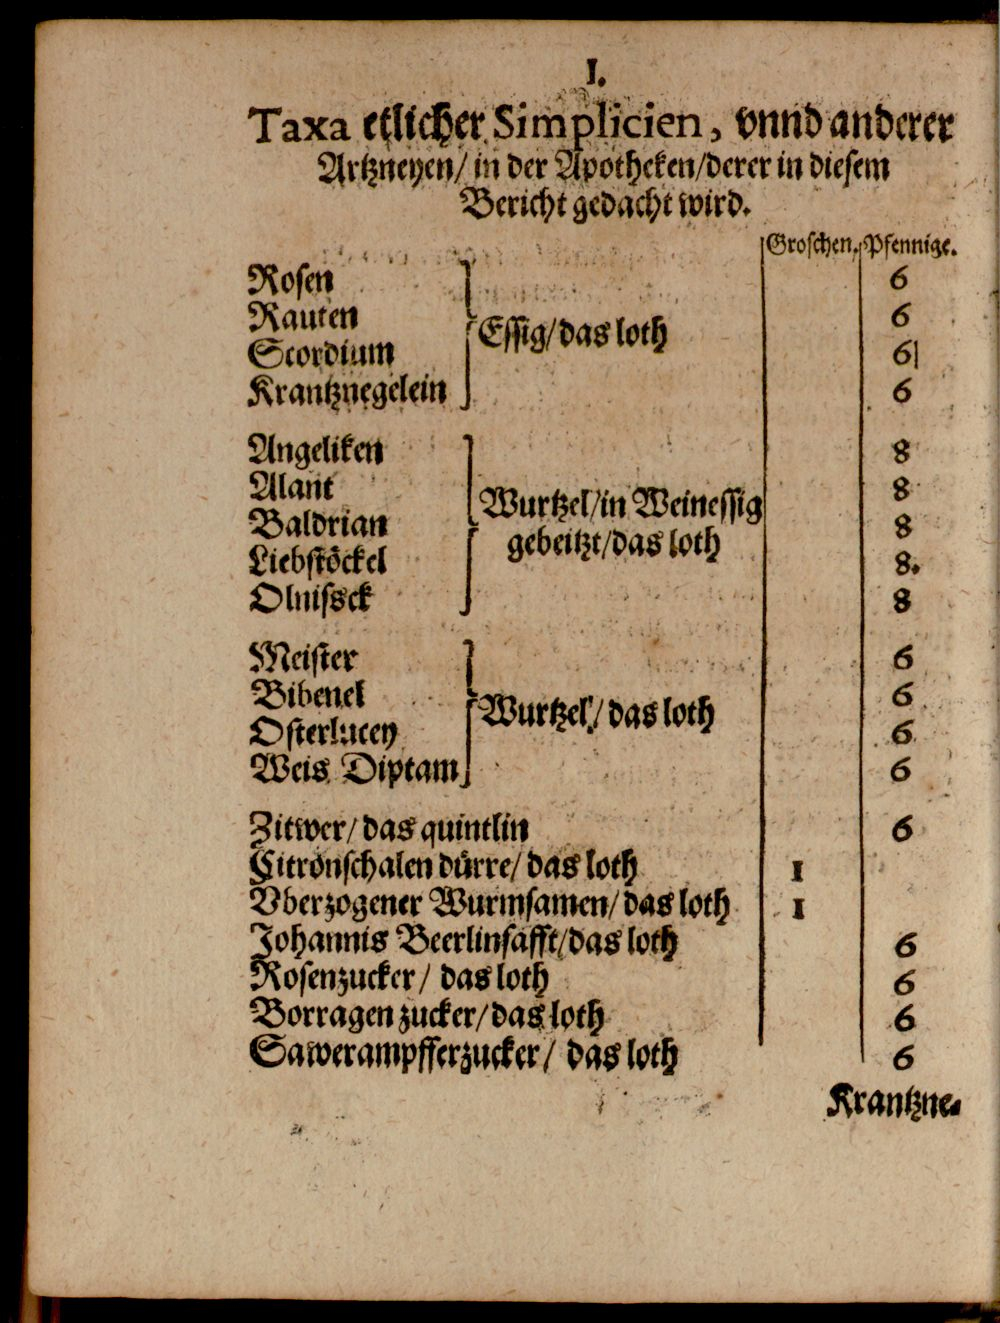 I.
Taxa etlicher Simplicien, vnnd anderer
Artzneyen/ in der Apotheken/ derer in diesem
Bericht gedacht wird.
Groschen. Pfennige.
Rosen 6
Rauten 6
Essig/ das loth
Scordium 6
Krantznegelein 6
Angeliken 8
Alant 8
Wurtzel/ in Weinessig
Baldrian 8
gebeitzt/ das loth
Liebstöckel 8.
Olnisseck 8
Meister 6
Bibenel 6
Wurtzel/ das loth
Osterlucey 6
Weis Diptam 6
Zitwer/ das quintlin 6
Citronschalen dürre/ das loth 1
Vberzogener Wurmsamen/ das loth 1
Johannis Beerlinsafft/ das loth 6
Rosenzucker/ das loth 6
Borragen zucker/ das loth 6
Sawerampfferzucker/ das loth 6
Krantzne-